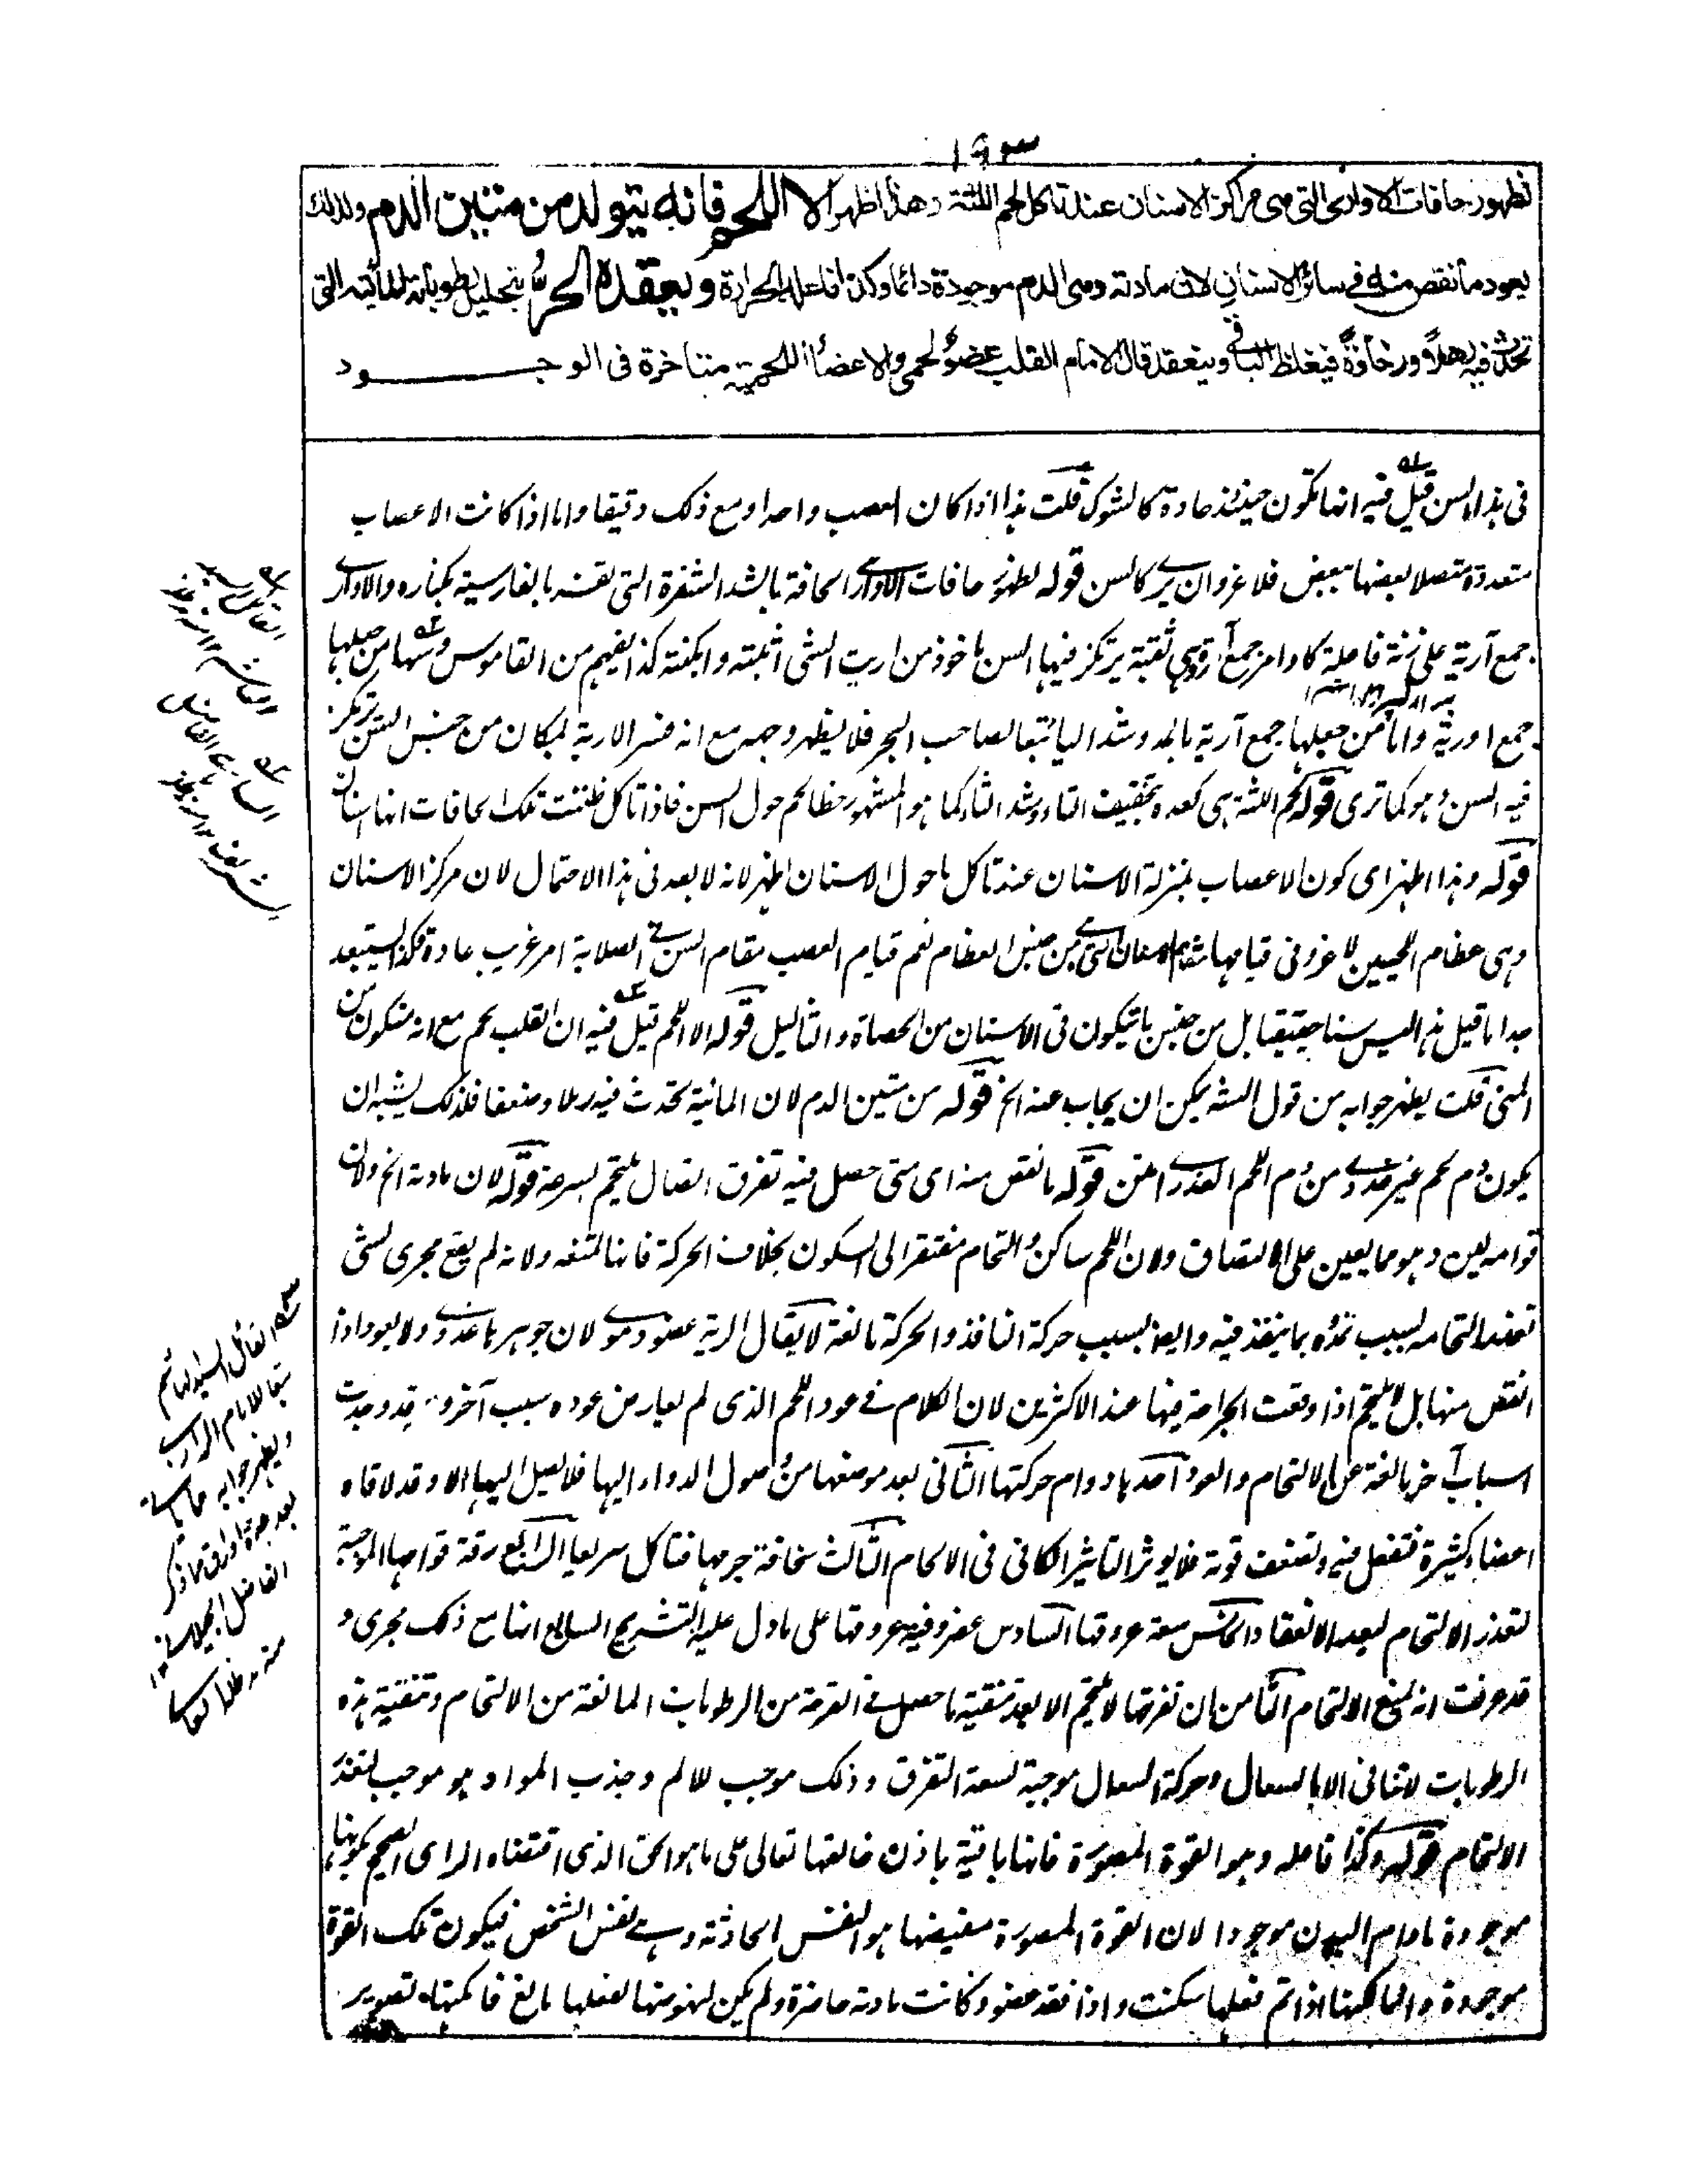 ١٩٣
لظهور حافات الاوارى التى هى مراكز الاسنان عند تاكل لحم اللثة وهذا اظهر الا اللحم فانه يتولد من متين الدم ولذلك
يعود ما نقص منه فى سائر الاسنان لان مادته وهى الدم موجودة دائما وكذا فاعله الحرارة ويعقده الحر بتحليل رطوباته المائية التى
تحدث فيه رهلا ورخاوة فيغلظ الباقى وينعقد قال الامام القلب عضو لحمى والاعضاء اللحمية متاخرة فى الوجود
فى هذا السن قيل فيه انها تكون حينئذ حادة كالشوك قلت هذا اذا كان العصب واحدا ومع ذلك دقيقا واما اذا كانت الاعصاب
متعددة متصلا بعضها ببعض فلا غرو ان يرى كالسن قوله لظهور حافات الاوارى الحافة بالشد الشفرة التى يقتسمه بالفارسية بكناره والاوارى
جمع آرية على زنة فاعلة كاوامر جمع آمرة وهى ثقبة يرتكز فيها السن ماخوذ من اريت الشئ اثبته وامكنته كذا يفهم من القاموس ومنها من جعلها
جمع اورية واما من جعلها جمع آرية بالمد وشد الياء تبعا لصاحب البحر فلا يظهر وجهه مع انه فسر الارية بمكان من جنس السن يرتكز
فيه السن وهو كما ترى قوله لحم اللثة هى كعدة بتخفيف الثاء وشد الثاء كما هو المشهور خطا لحم حول السن فاذا تاكل ظننت تلك الحافات انها اسنان
قوله وهذا اظهر اى كون الاعصاب بمنزلة الاسنان عند تاكل ما حول الاسنان اظهر لانه لا بعد فى هذا الاحتمال لان مركز الاسنان
وهى عظام اللحيين لا غرو فى قيامها مقام الاسنان التى هى من جنس العظام نعم قيام العصب مقام السن فى الصلابة امر غريب عادة فكذا يستبعد
جدا ما قيل هذا ليس سنا حقيقيا بل من جنس ما يتكون فى الاسنان من الحصاة والثآليل قوله الا اللحم قيل فيه ان القلب لحم مع انه متكون من
المنى قلت يظهر جوابه من قول الشه يمكن ان يجاب عنه الخ قوله من متين الدم لان المائية تحدث فيه رهلا وضعفا فلذلك يشبه ان
يكون دم لحم غير غددى من دم اللحم الغددى امتن قوله ما نقص منه اى متى حصل فيه تفرق اتصال يلتحم بسرعة قوله لان مادته الخ ولان
قوامه لين وهو مما يعين على الالتصاق ولان اللحم ساكن والتحام مفتقر الى السكون بخلاف الحركة فانها تمنعه ولانه لم يقع مجرى لشئ
تعذر التحامه بسبب تمدده بما ينفذ فيه وايضا بسبب حركة النافذ والحركة مانعة لا يقال الرية عضو دموى لان جوهرها غددى ولا يعود اذا
انتقص منها بل لا يلتحم اذا وقعت الجراحة فيها عند الاكثرين لان الكلام فى عود اللحم الذى لم يعارض عوده سبب آخر وهنا قد وجدت
اسباب آخر مانعة عن الالتحام والعود احدها دوام حركتها الثانى بعد موضعها من وصول الدواء اليها فلا يصل اليها الا وقد لاقاه
اعضاء كثيرة فتفعل فيه وتضعف قوته فلا يوثر التاثير الكافى فى الالحام الثالث سخافة جرمها فتتاكل سريعا الرابع رقة قوامها الموجبة
لتعذر الالتحام لبعد الانعقاد الخامس سعة عروقها السادس غضروفية عروقها على ما دل عليه التشريح السابع انها مع ذلك مجرى و
قد عرفت انه يمنع الالتحام الثامن ان تفرقها لا يلتحم الا بعد تنقية ما حصل فى القرحة من الرطوبات المانعة من الالتحام وتنقية هذه
الرطوبات لا تتاتى الا بالسعال وحركة السعال موجبة لسعة التفرق وذلك موجب للالم وجذب المواد وهو موجب لتعذر
الالتحام قوله وكذا فاعله وهو القوة المصورة فانها باقية باذن خالقها تعالى على ما هو الحق الذى اقتضاه الراى الصحيح بكونها
موجودة ما دام البدن موجودا لان القوة المصورة مفيضها هو النفس الحادثة وهى نفس الشخص فيكون تلك القوة
موجودة دائما لكنها اذا تم فعلها سكنت واذا فقد عضو وكانت مادته حاضرة ولم يكن لنهوضها لفعلها مانع فامكنها تصوير
القائل السيد
القائل السيد الهاشم
تبعا للامام الرازى
ويظهر جوابه
بعد عدة اوراق مما ذكر
الفاضل الجيلانى
منه مد ظله العالى